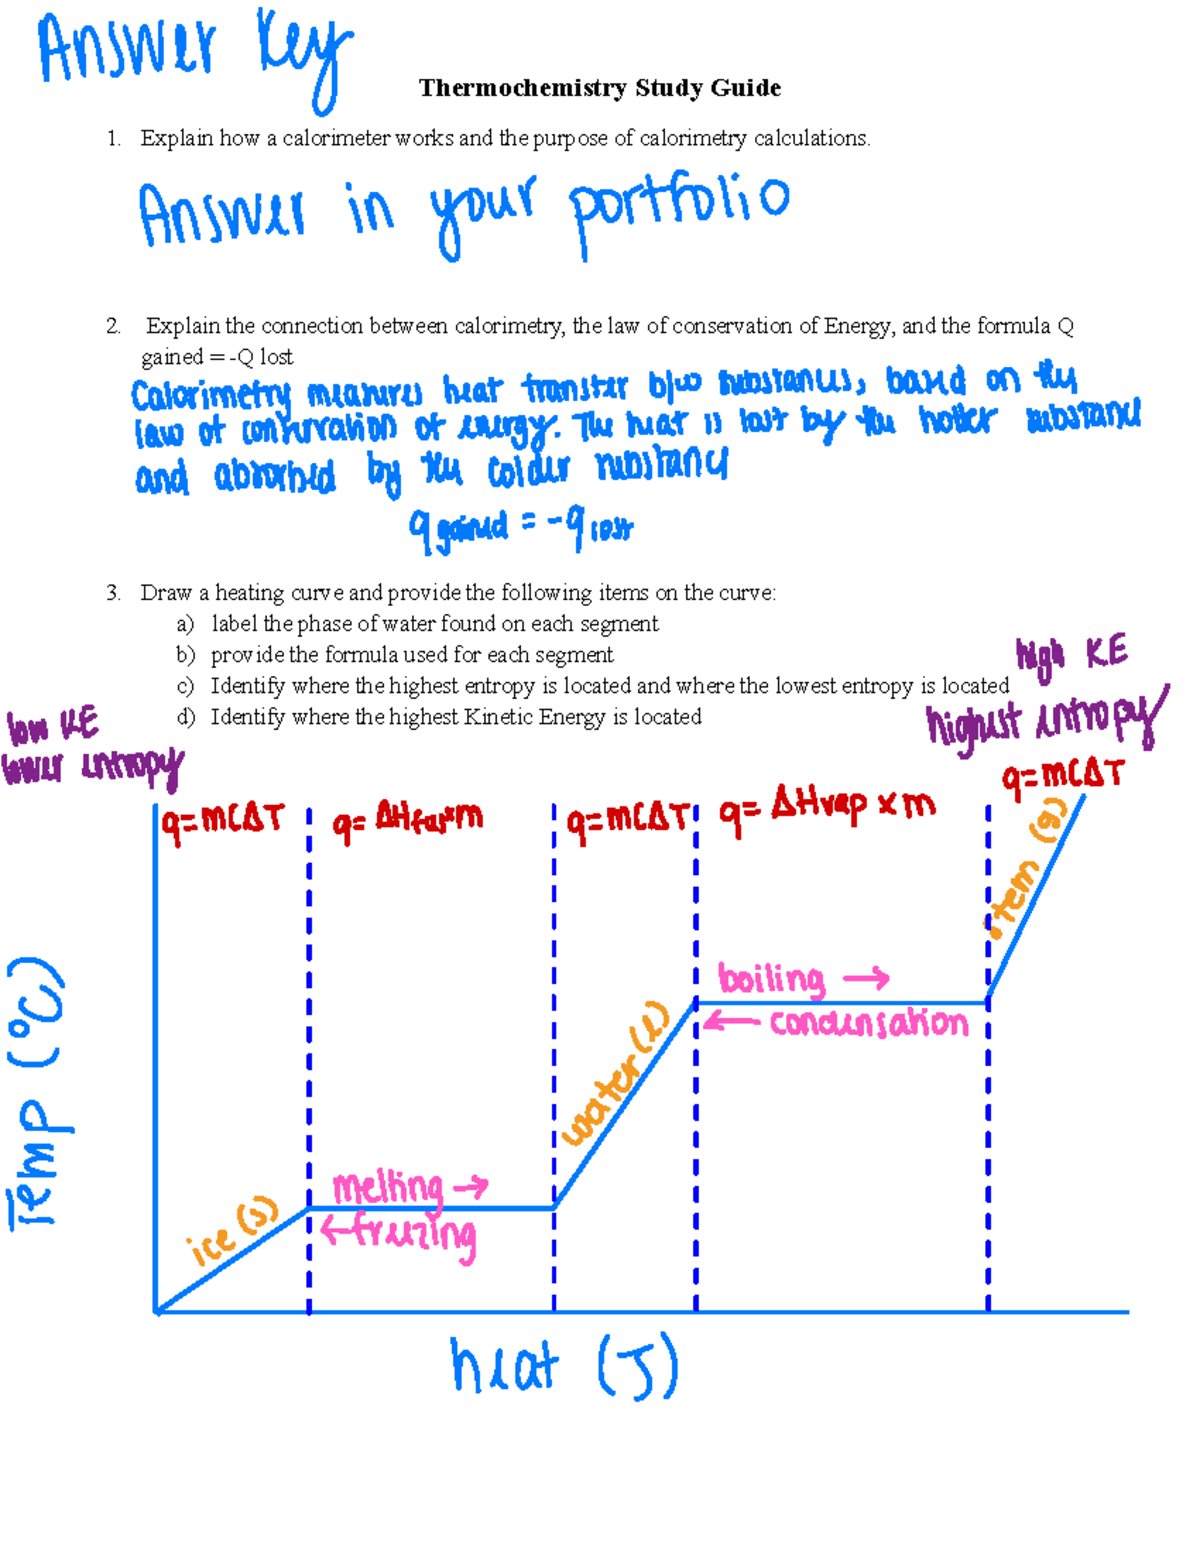 Answer Key
Thermochemistry Study Guide
1. Explain how a calorimeter works and the purpose of calorimetry calculations.
Answer in your portfolio
2. Explain the connection between calorimetry, the law of conservation of Energy, and the formula Q
gained = -Q lost
Calorimetry measures heat transfer b/w substances, based on the
law of conservation of energy. The heat is lost by the hotter substance
and absorbed by the colder substance
q gained = -q lost
3. Draw a heating curve and provide the following items on the curve:
a) label the phase of water found on each segment
b) provide the formula used for each segment
c) Identify where the highest entropy is located and where the lowest entropy is located
d) Identify where the highest Kinetic Energy is located
high KE
highest entropy
low KE
lower entropy
q=mCΔT
q= ΔHfus×m
q=mCΔT
q= ΔHvap x m
q=mCΔT
Temp (°C)
ice (s)
melting →
← freezing
water (l)
boiling →
← condensation
stem (g)
heat (J)